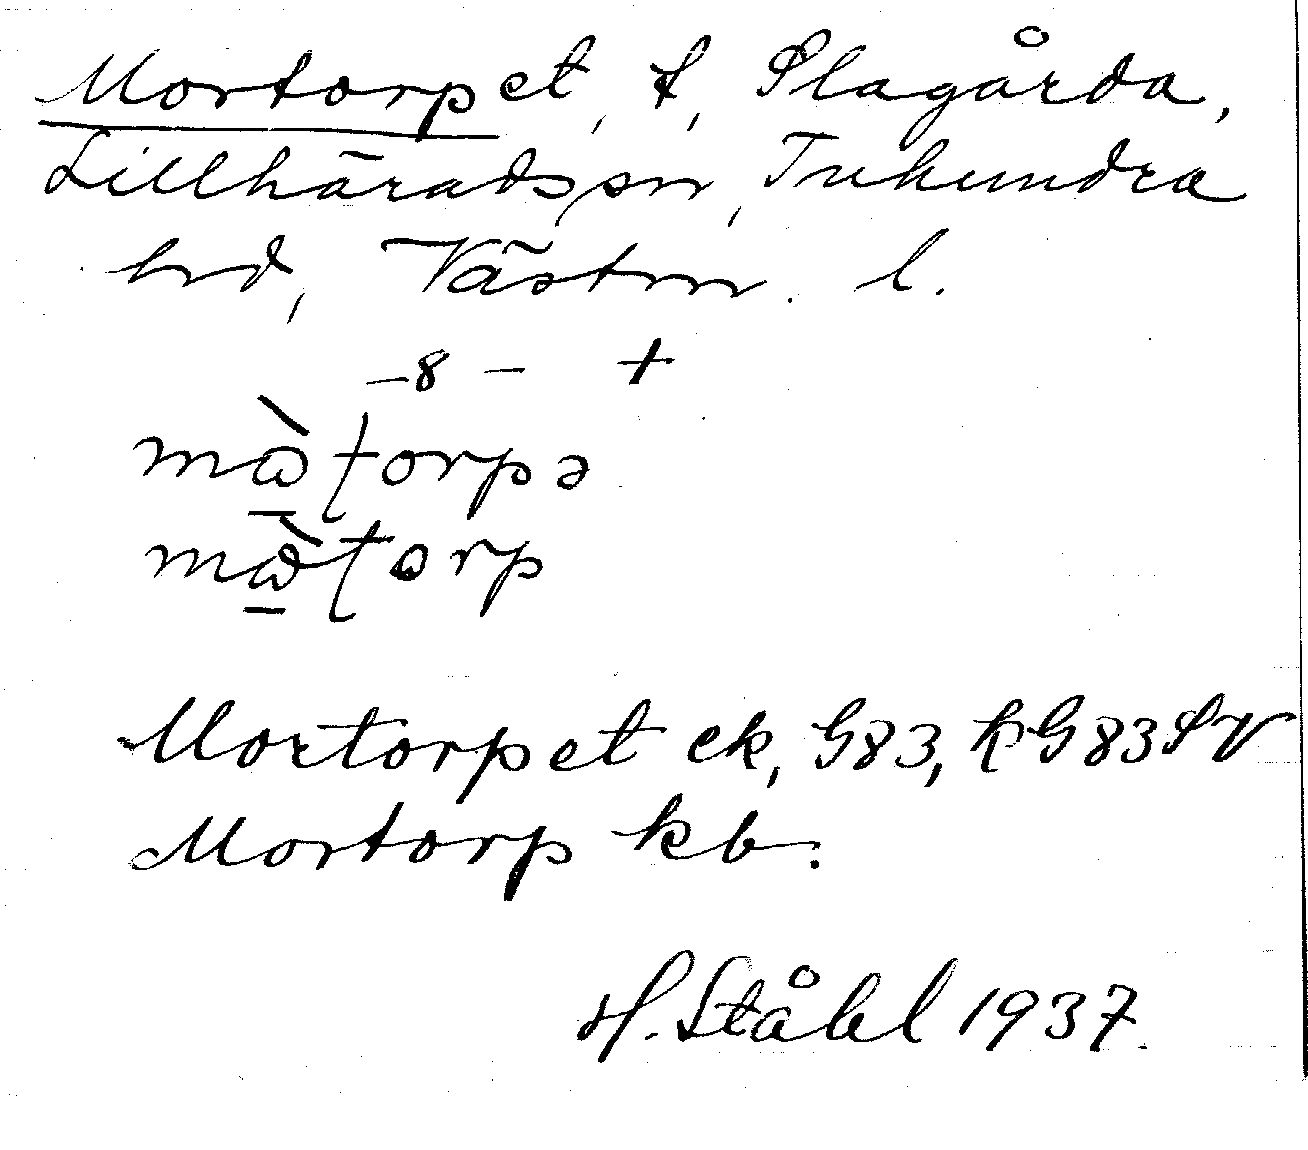 Mortorpet, t, Slagårda,
Lillhärads sn, Tuhundra
hrd, Västm. l.
-8- +
mὰ̱ʈorpə
mὰ̱ʈorp
Mortorpet ek, G83, kG83SV
Mortorp kb.
H. Ståhl 1937.